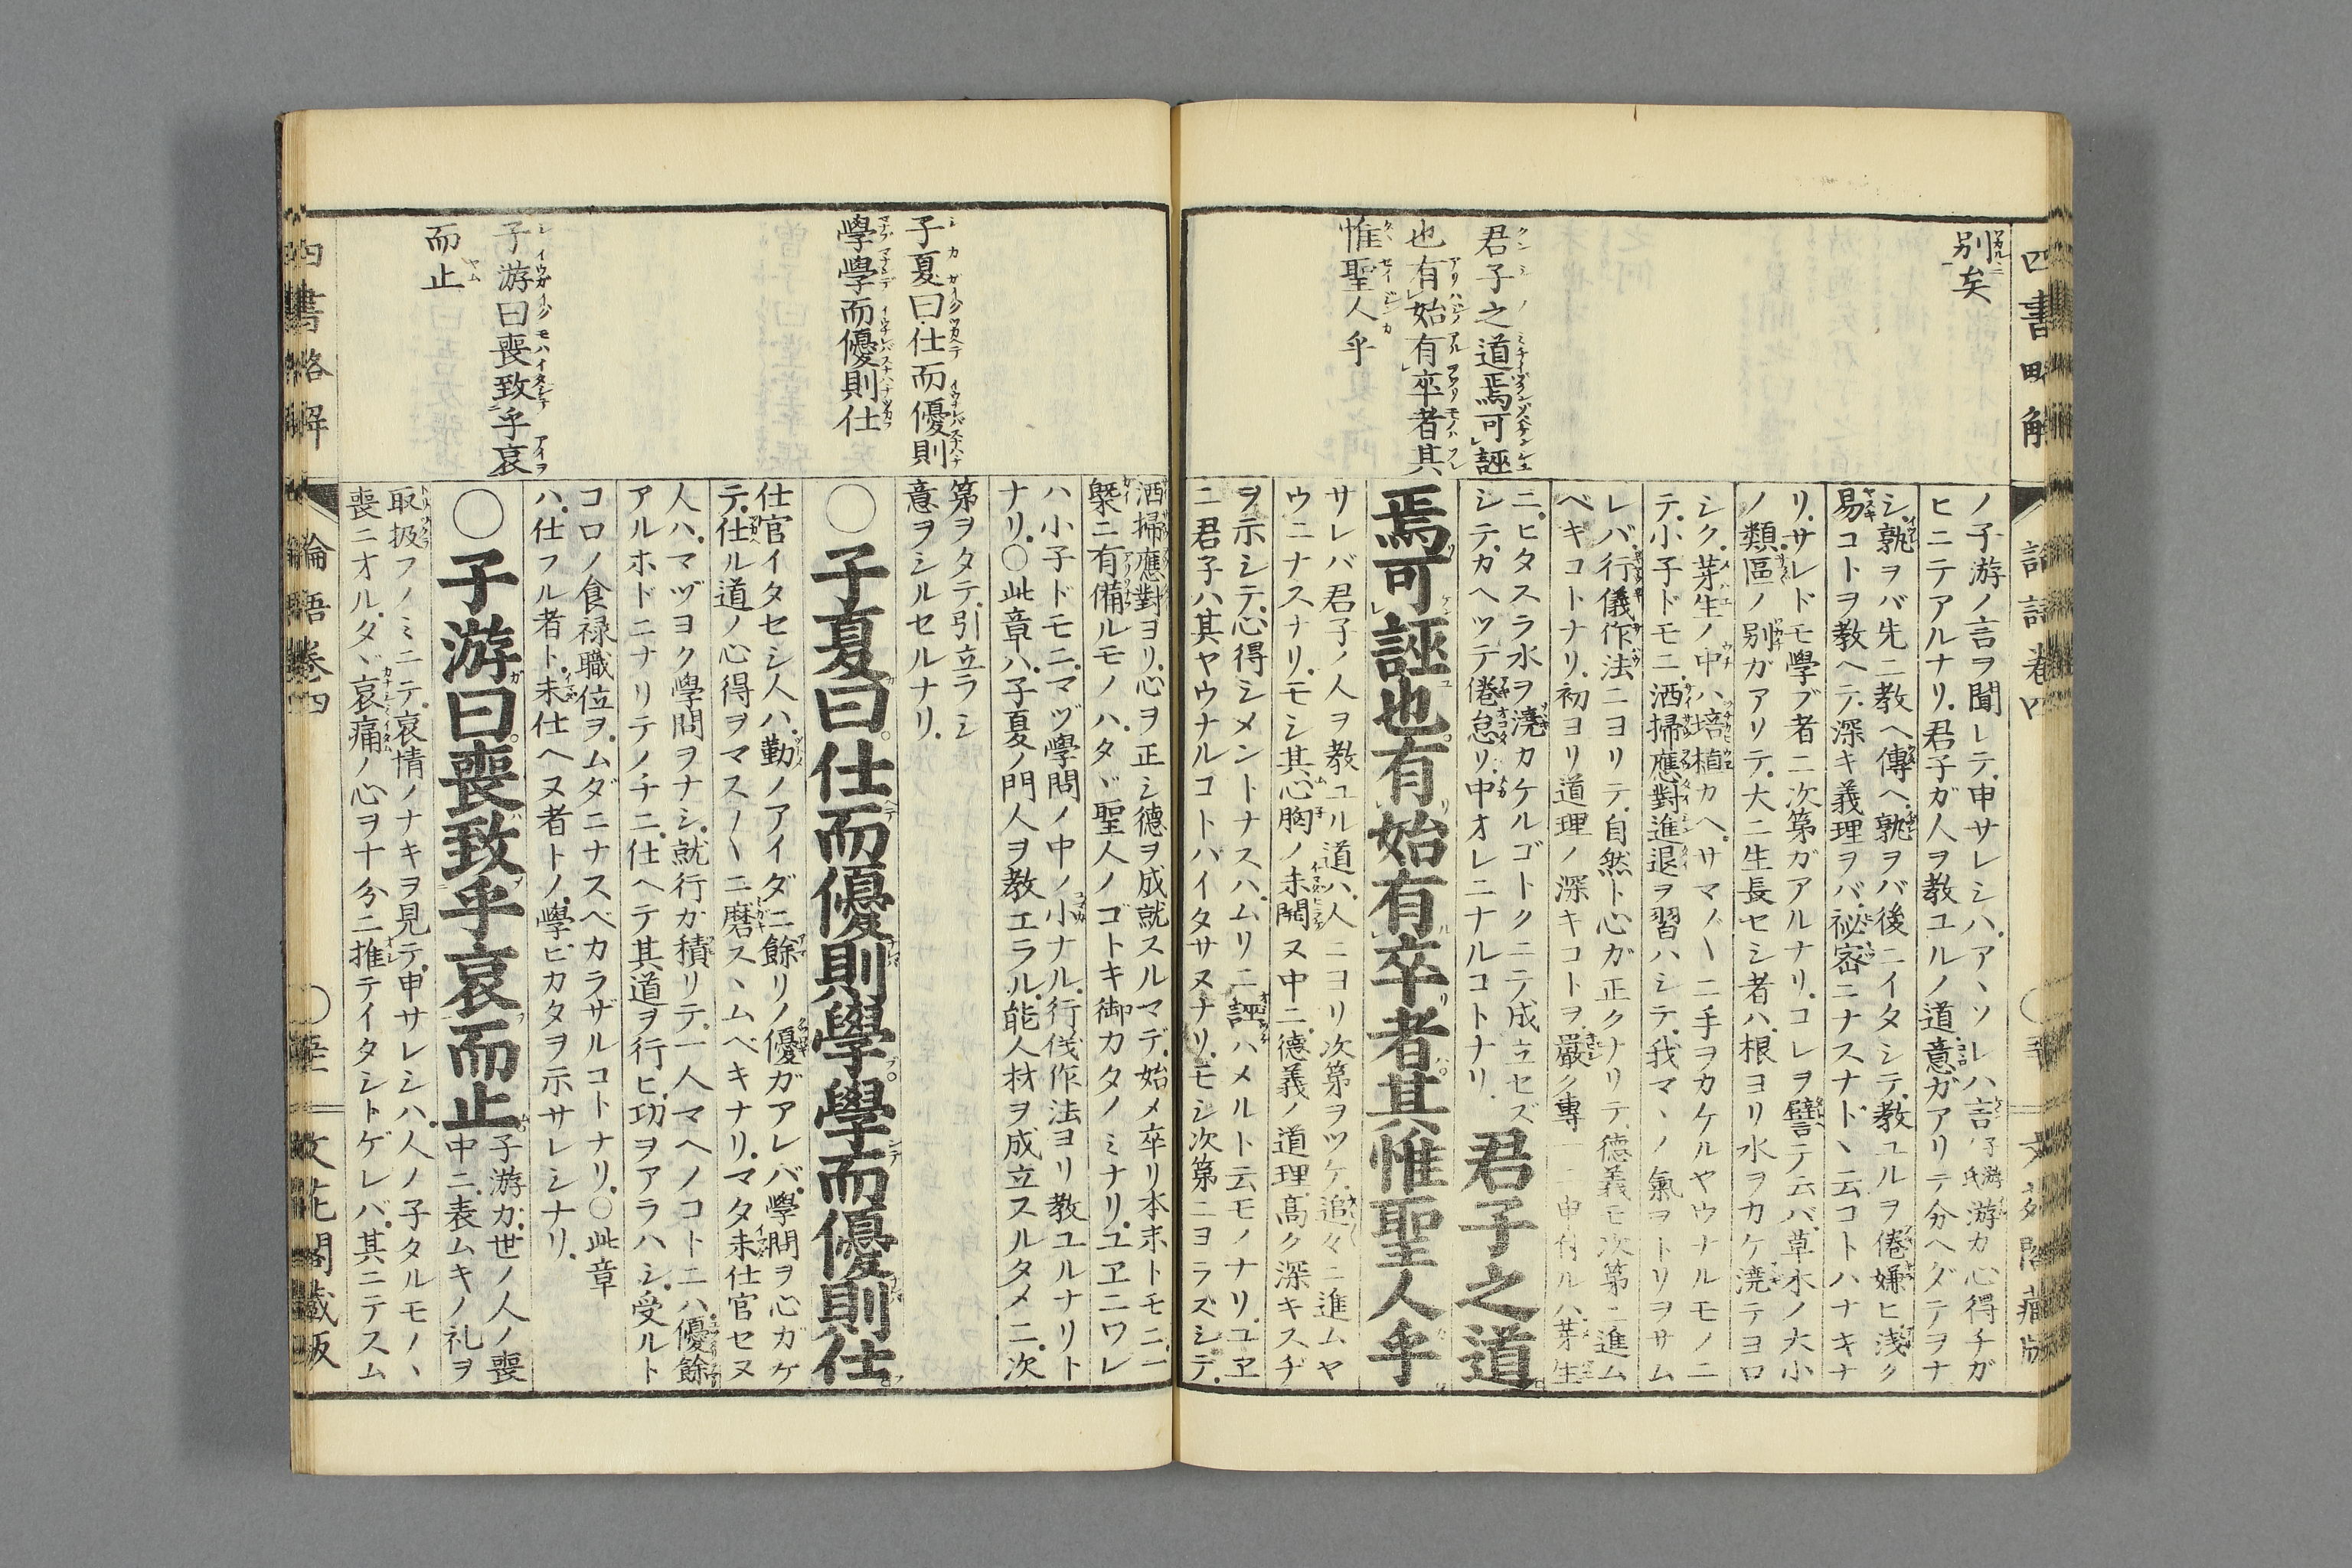 四書略解
論語卷四
別矣
君子之道焉可誣
也有始有卒者其
惟聖人乎
ノ子游ノ言ヲ聞レテ申サレシハアヽソレハ言子游氏游カ心得チガ
ヒニテアルナリ君子ガ人ヲ教ユルノ道意ガアリテ分ヘダテヲナ
シ孰ヲバ先ニ教ヘ傳ヘ孰ヲバ後ニイタシテ教ユルヲ倦嫌ヒ淺ク
易コトヲ教ヘテ深キ義理ヲバ祕密ニナスナドヽ云コトハナキナ
リサレドモ學ブ者ニ次第ガアルナリコレヲ譬テ云バ草木ノ大小
ノ類區ノ別ガアリテ大ニ生長セシ者ハ根ヨリ水ヲカケ澆テヨロ
シク芽生ノ中ハ培植カヘサマ〴〵ニ手ヲカケルヤウナルモノニ
テ小子ドモニ洒掃應對進退ヲ習ハシテ我マヽノ氣ヲトリヲサム
レバ行儀作法ニヨリテ自然ト心ガ正クナリテ德義モ次第ニ進ム
ベキコトナリ初ヨリ道理ノ深キコトヲ嚴ク專ニ申付ルハ芽生
ニヒタスラ水ヲ澆カケルゴトクニテ成立セズ
シテカヘツテ倦怠リ中オレニナルコトナリ
君子之道
焉可誣也有始有卒者其惟聖人乎
サレバ君子ノ人ヲ教ユル道ハ人ニヨリ次第ヲツケ追々ニ進ムヤ
ウニナスナリモシ其心胸ノ未開ヌ中ニ德義ノ道理高ク深キスヂ
ヲ示シテ心得シメントナスハムリニ誣ハメルト云モノナリユヱ
ニ君子ハ其ヤウナルコトハイタサヌナリモシ次第ニヨラズシテ
子夏曰仕而優則
學學而優則仕
子游曰喪致乎哀
而止
洒掃應對ヨリ心ヲ正シ德ヲ成就スルマデ始メ卒リ本末トモニ一
槩ニ有備ルモノハタヾ聖人ノゴトキ御カタノミナリユヱニワレ
ハ小子ドモニマヅ學問ノ中ノ小ナル行伐作法ヨリ教ユルナリト
ナリ〇此章ハ子夏ノ門人ヲ教エラル能人材ヲ成立スルタメニ次
第ヲタテ引立ラシ
意ヲシルセルナリ
〇子夏曰仕而優則學學而優則仕
仕官イタセシ人ハ勤ノアイダニ餘リノ優ガアレバ學問ヲ心ガケ
テ仕ル道ノ心得ヲマス〳〵ニ磨スヽムベキナリマタ未仕官セヌ
人ハマヅヨク學問ヲナシ就行ガ積リテ一人マヘノコトニハ優餘
アルホドニナリテノチニ仕ヘテ其道ヲ行ヒ功ヲアラハシ受ルト
コロノ食祿職位ヲムダニナスベカラザルコトナリ〇此章
ハ仕フル者ト未仕ヘヌ者トノ學ビカタヲ示サレシナリ
〇子游曰喪致乎哀而止
子游ガ世ノ人ノ喪
中ニ表ムキノ礼ヲ
取扱フノミニテ哀情ノナキヲ見テ申サレシハ人ノ子タルモノヽ
喪ニオルタヾ哀痛ノ心ヲ十分ニ推テイタシトゲレバ其ニテスム
四書略解
論語卷四
文花閣藏版